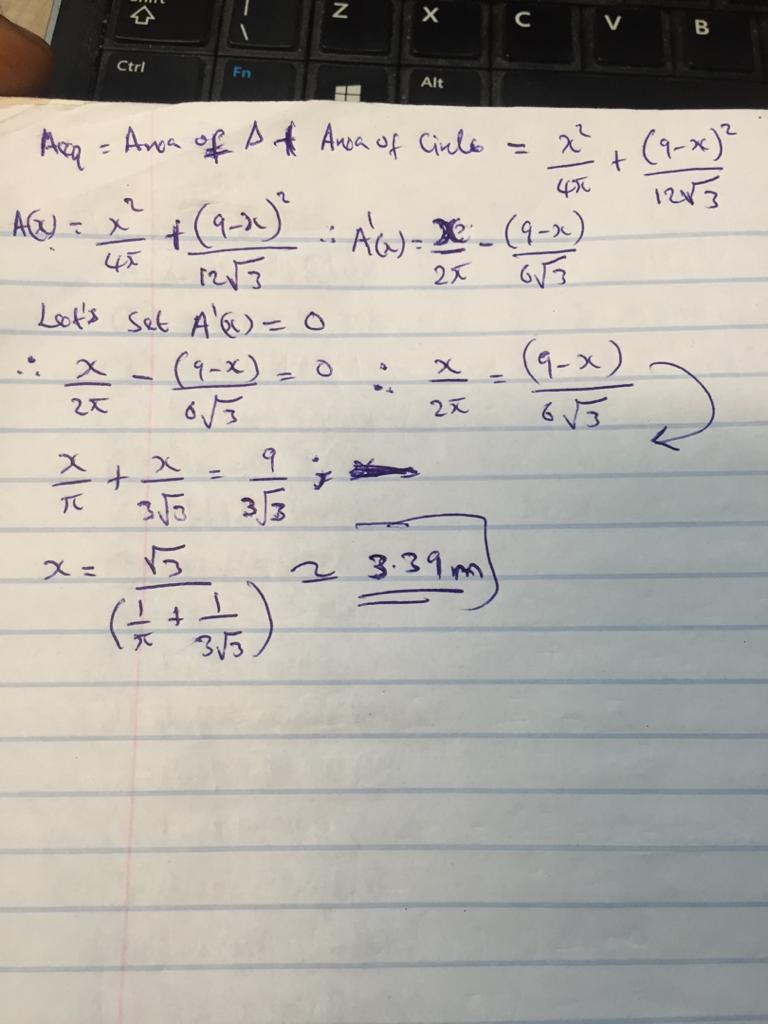 Shift | \ Z X C V B
Ctrl Fn Alt
Aeq = Area of Δ + Area of Circle = x²/4π + (9-x)²/12√3
A(x) = x²/4π + (9-x)²/12√3 ∴ A'(x) = x/2π - (9-x)/6√3
Let's set A'(x) = 0
∴ x/2π - (9-x)/6√3 = 0 ∴ x/2π = (9-x)/6√3
x/π + x/3√3 = 9/3√3 ;
x = √3/(1/π + 1/3√3) ≃ 3.39m